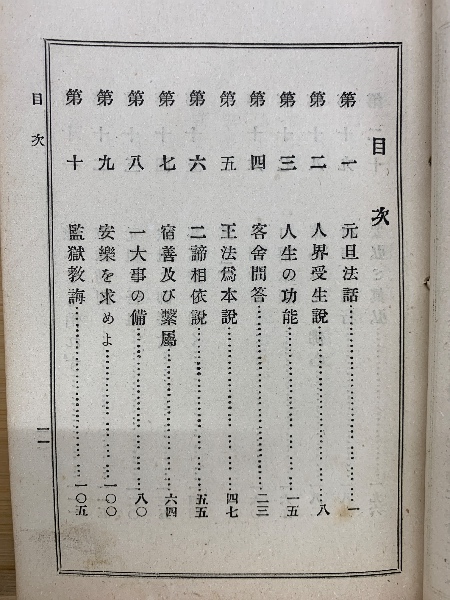 目次
第一 元旦法話……一
第二 人界受生説……八
第三 人生の功能……一五
第四 客舍問答……二三
第五 王法爲本説……四七
第六 二諦相依説……五五
第七 宿善及び繫屬……六四
第八 一大事の備……八〇
第九 安樂を求めよ……一〇〇
第十 監獄教誨……一〇五
目次